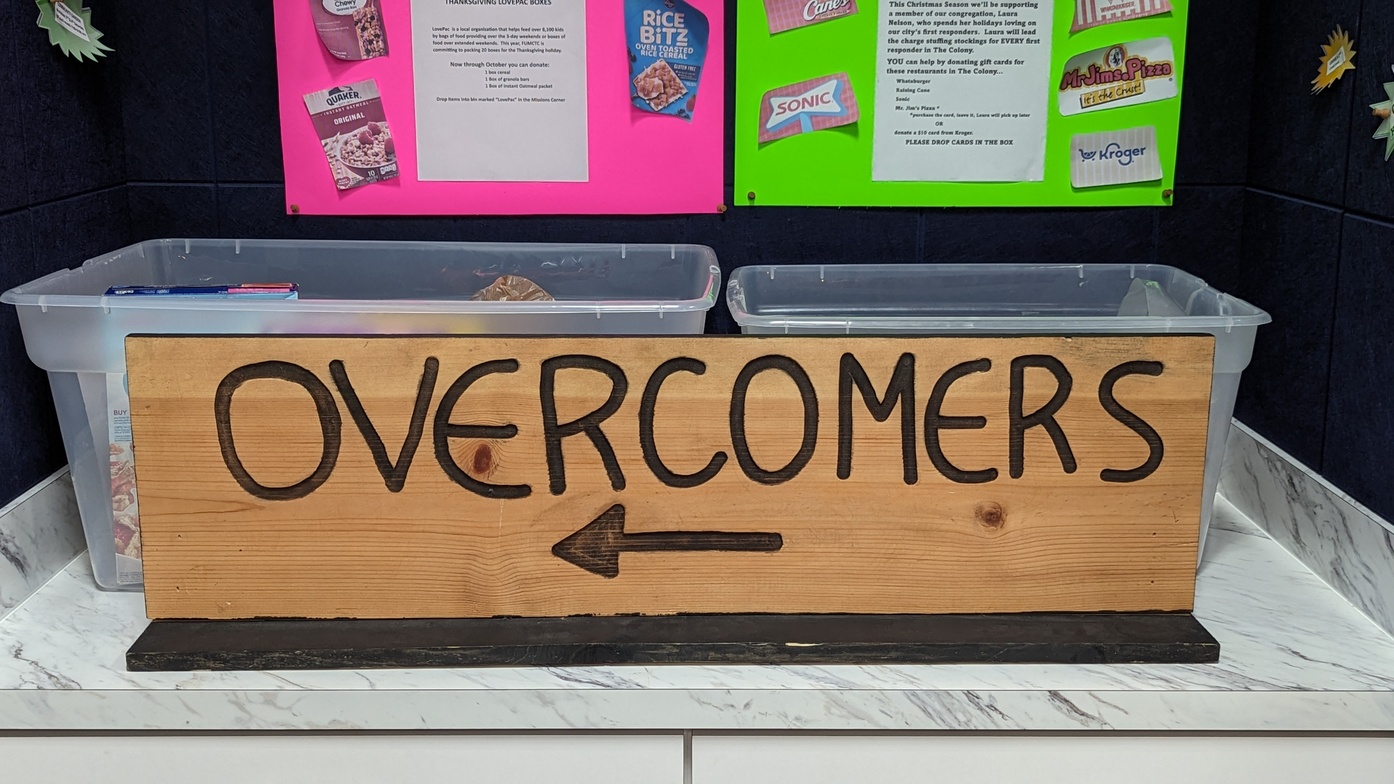 Chewy
QUAKER
INSTANT OATMEAL
ORIGINAL
10
THANKSGIVING LOVEPAC BOXES
LovePac is a local organisation that helps feed over 8,100 kids
by bags of food providing over the 3-day weekends or boxes of
food over extended weekends. This year, FUMCTC is
committing to packing 20 boxes for the Thanksgiving holiday.
Now through October you can donate:
1 box cereal
1 Box of granola bars
1 Box of instant Oatmeal packet
Drop items into bin marked "LovePac" in the Missions Corner
RiCE
BiTZ
OVEN TOASTED
RICE CEREAL
GLUTEN FREE
Cane's
SONIC
This Christmas Season we'll be supporting
a member of our congregation, Laura
Nelson, who spends her holidays loving on
our city's first responders. Laura will lead
the charge stuffing stockings for EVERY first
responder in The Colony.
YOU can help by donating gift cards for
these restaurants in The Colony...
Whataburger
Raising Cane
Sonic
Mr. Jim's Pizza *
*purchase the card, leave it, Laura will pick up later
OR
donate a $10 card from Kroger.
PLEASE DROP CARDS IN THE BOX
WHATABURGER
Mr Jim's.Pizza
It's the Crust!
Kroger
BUY
OVERCOMERS